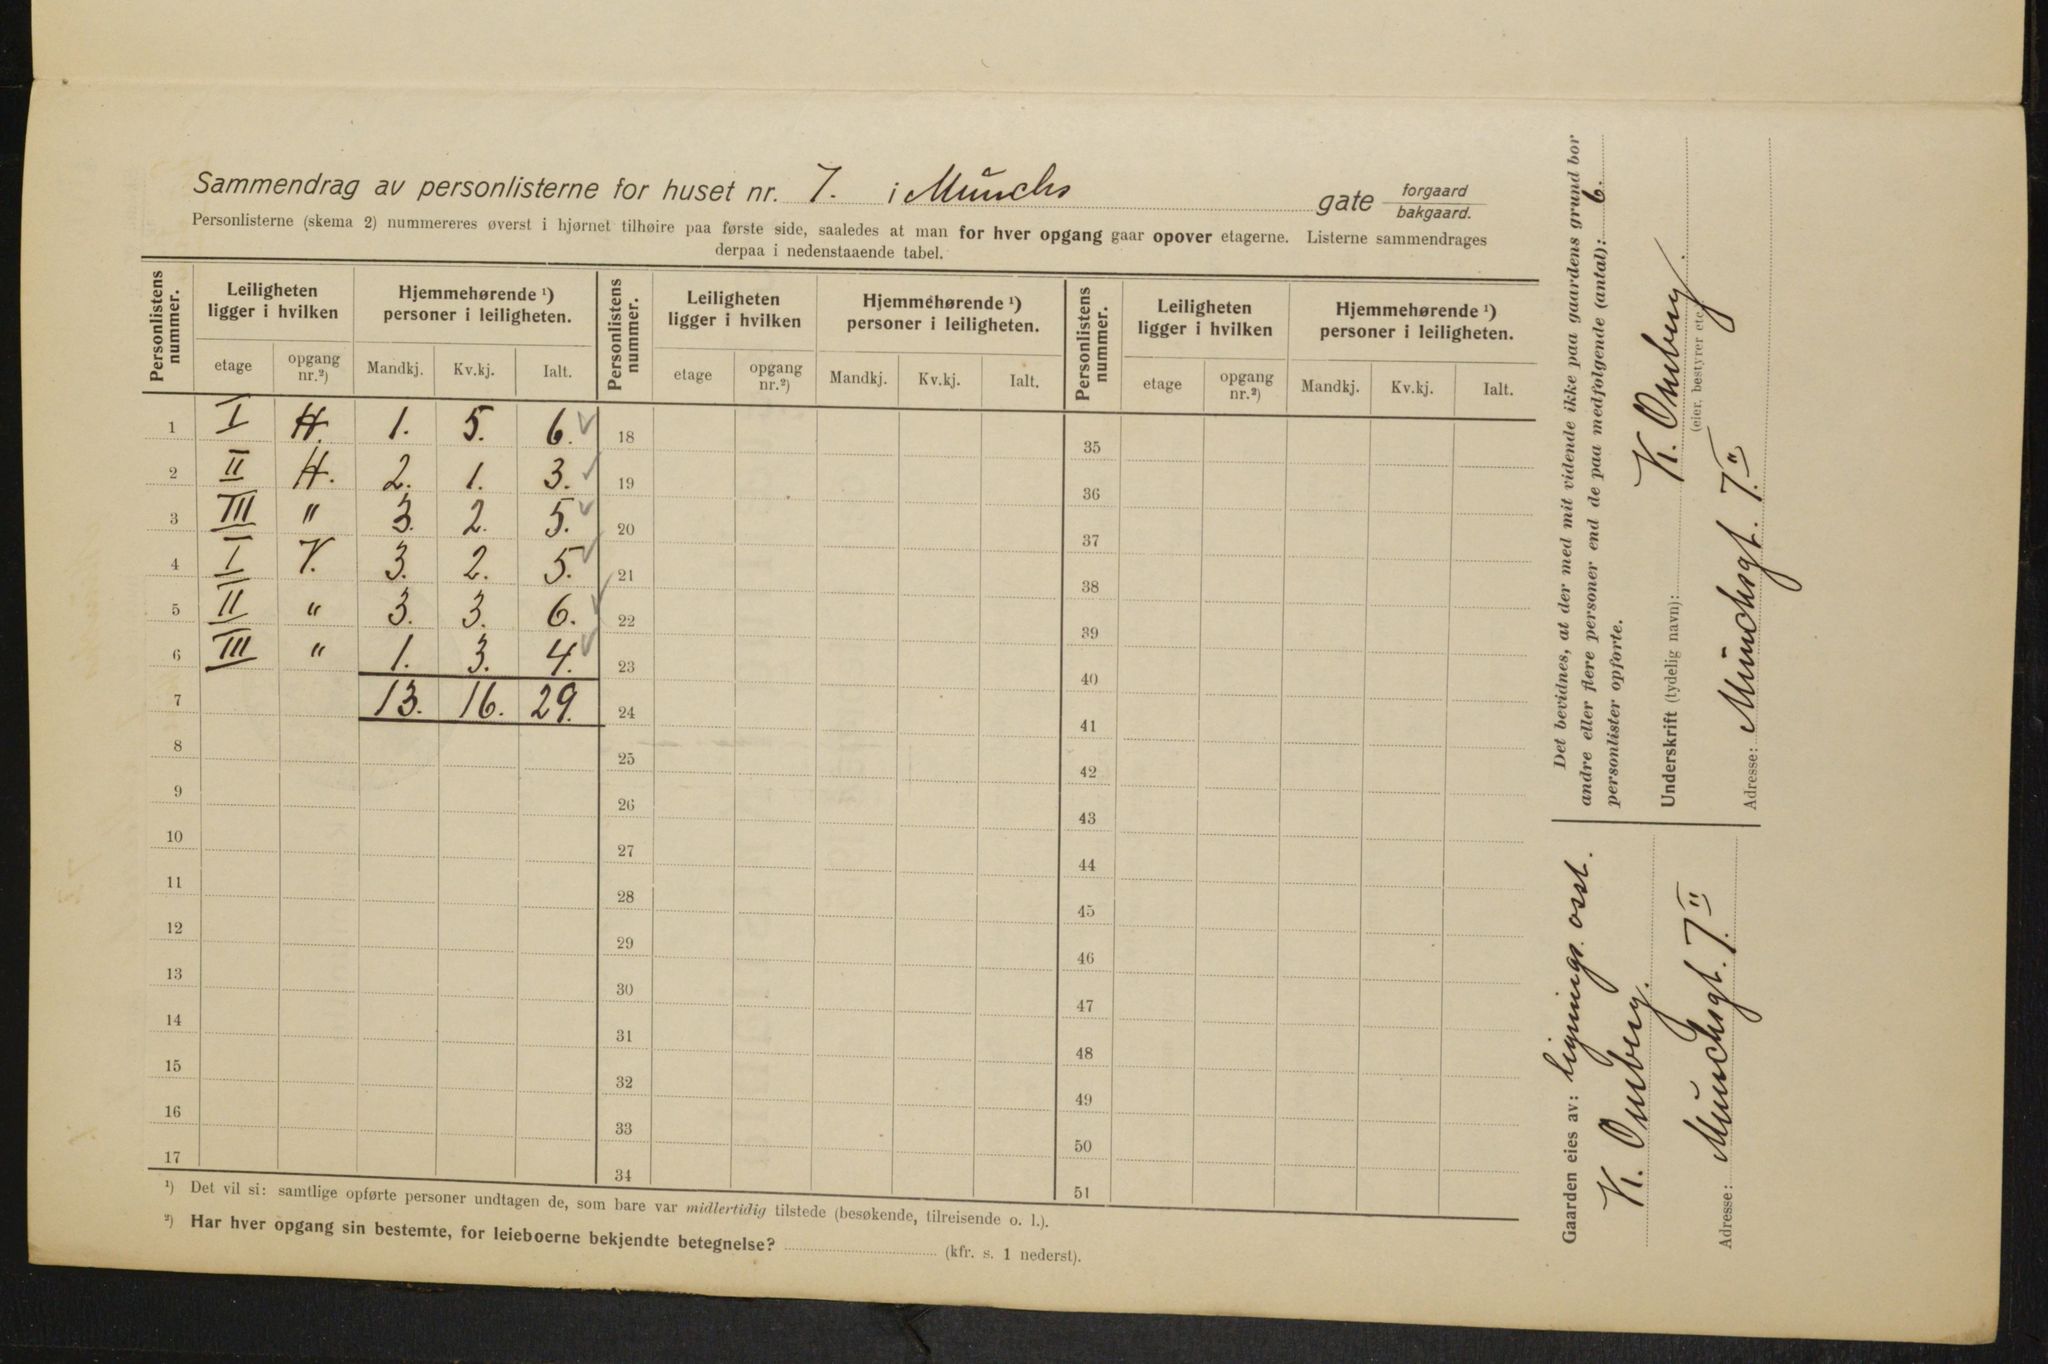 Sammendrag av personlisterne for huset nr. 7. i Münchs gate forgaard bakgaard.
Personlisterne (skema 2) nummereres øverst i hjørnet tilhøire paa første side, saaledes at man for hver opgang gaar opover etagerne. Listerne sammendrages
derpaa i nedenstaaende tabel.
Personlistens nummer. Leiligheten ligger i hvilken Hjemmehørende ¹) personer i leiligheten. Personlistens nummer. Leiligheten ligger i hvilken Hjemmehørende ¹) personer i leiligheten. Personlistens nummer. Leiligheten ligger i hvilken Hjemmehørende ¹) personer i leiligheten.
etage opgang nr.²) Mandkj. Kv.kj. Ialt. etage opgang nr.²) Mandkj. Kv.kj. Ialt. etage opgang nr.²) Mandkj. Kv.kj. Ialt.
1 I H. 1. 5. 6. 18 35
2 II H. 2. 1. 3. 19 36
3 III " 3. 2. 5. 20 37
4 I V. 3. 2. 5. 21 38
5 II " 3. 3. 6. 22 39
6 III " 1. 3. 4. 23 40
7 13. 16. 29. 24 41
8 25 42
9 26 43
10 27 44
11 28 45
12 29 46
13 30 47
14 31 48
15 32 49
16 33 50
17 34 51
¹) Det vil si: samtlige opførte personer undtagen de, som bare var midlertidig tilstede (besøkende, tilreisende o. l.).
²) Har hver opgang sin bestemte, for leieboerne bekjendte betegnelse? (kfr. s. 1 nederst).
Det bevidnes, at der med mit vidende ikke paa gaardens grund bor
andre eller flere personer end de paa medfølgende (antal): 6.
personlister opførte.
Underskrift (tydelig navn): K. Omberg.
(eier, bestyrer etc.)
Adresse: Münchsgt. 7.II
Gaarden eies av: Lignings. osst.
K. Omberg.
Adresse: Münchsgt. 7.II